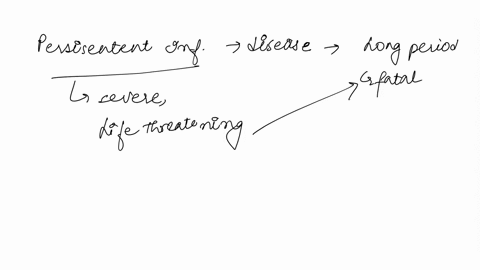 Perssisentent inf. → disease → Long period
↳ severe, ↳ fatal
Life threatening